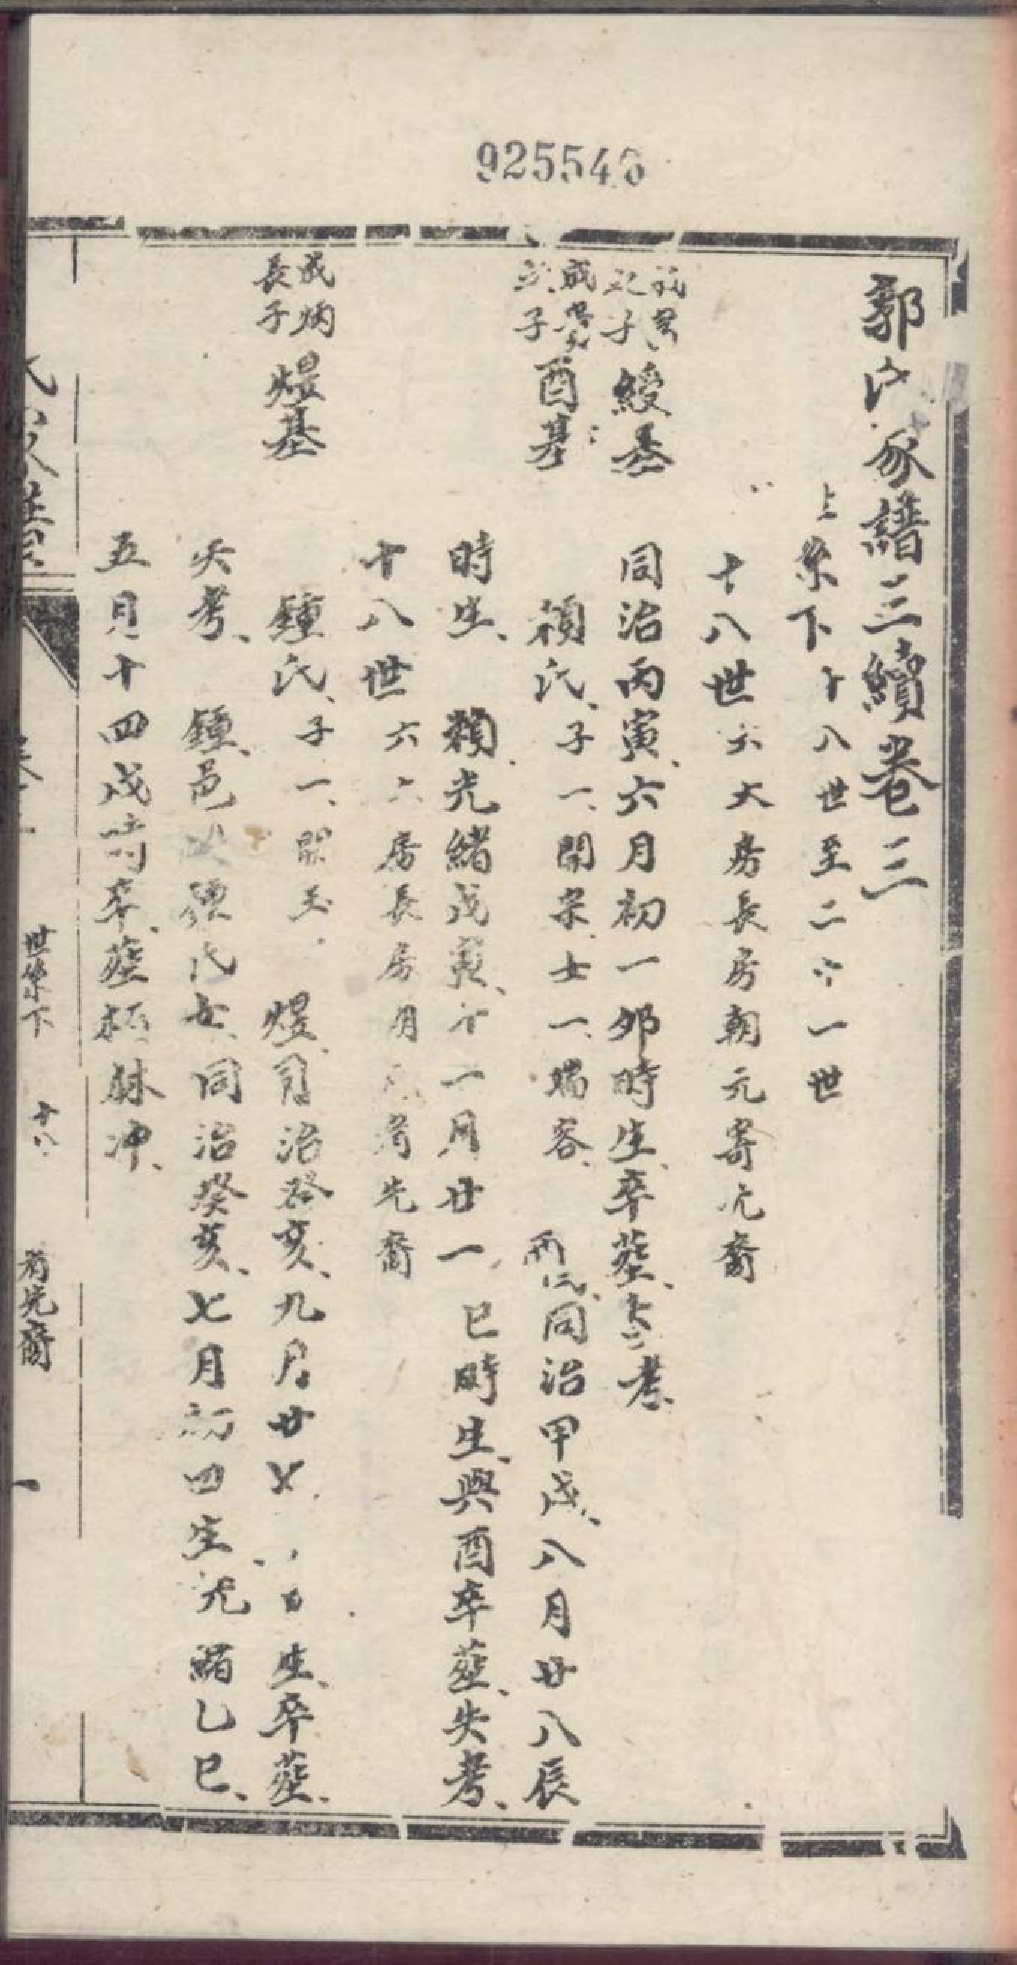 925546
郭氏家譜三續卷三
上系下十八世至二十一世
十八世六大房長房朝元寄九裔
綬基 同治丙寅、六月初一卯時生、卒葬、失考、
成 子酉基 賴氏、子一、開宗、士一、瑞容、 酉、同治甲戌、八月廿八辰
時生、賴、光緒戊寅、十一月廿一、巳時生、與酉卒葬、失考、
十八世六六房長房月 清先裔
成炳長子煜基 鍾氏、子一、開玉、煜、同治癸亥、九月廿七、日生、卒葬、
失考、鍾、邑 鍾氏女、同治癸亥、七月初四生、光緒乙巳、
五月十四戌時卒、葬 脉冲、
世系下 十八 一